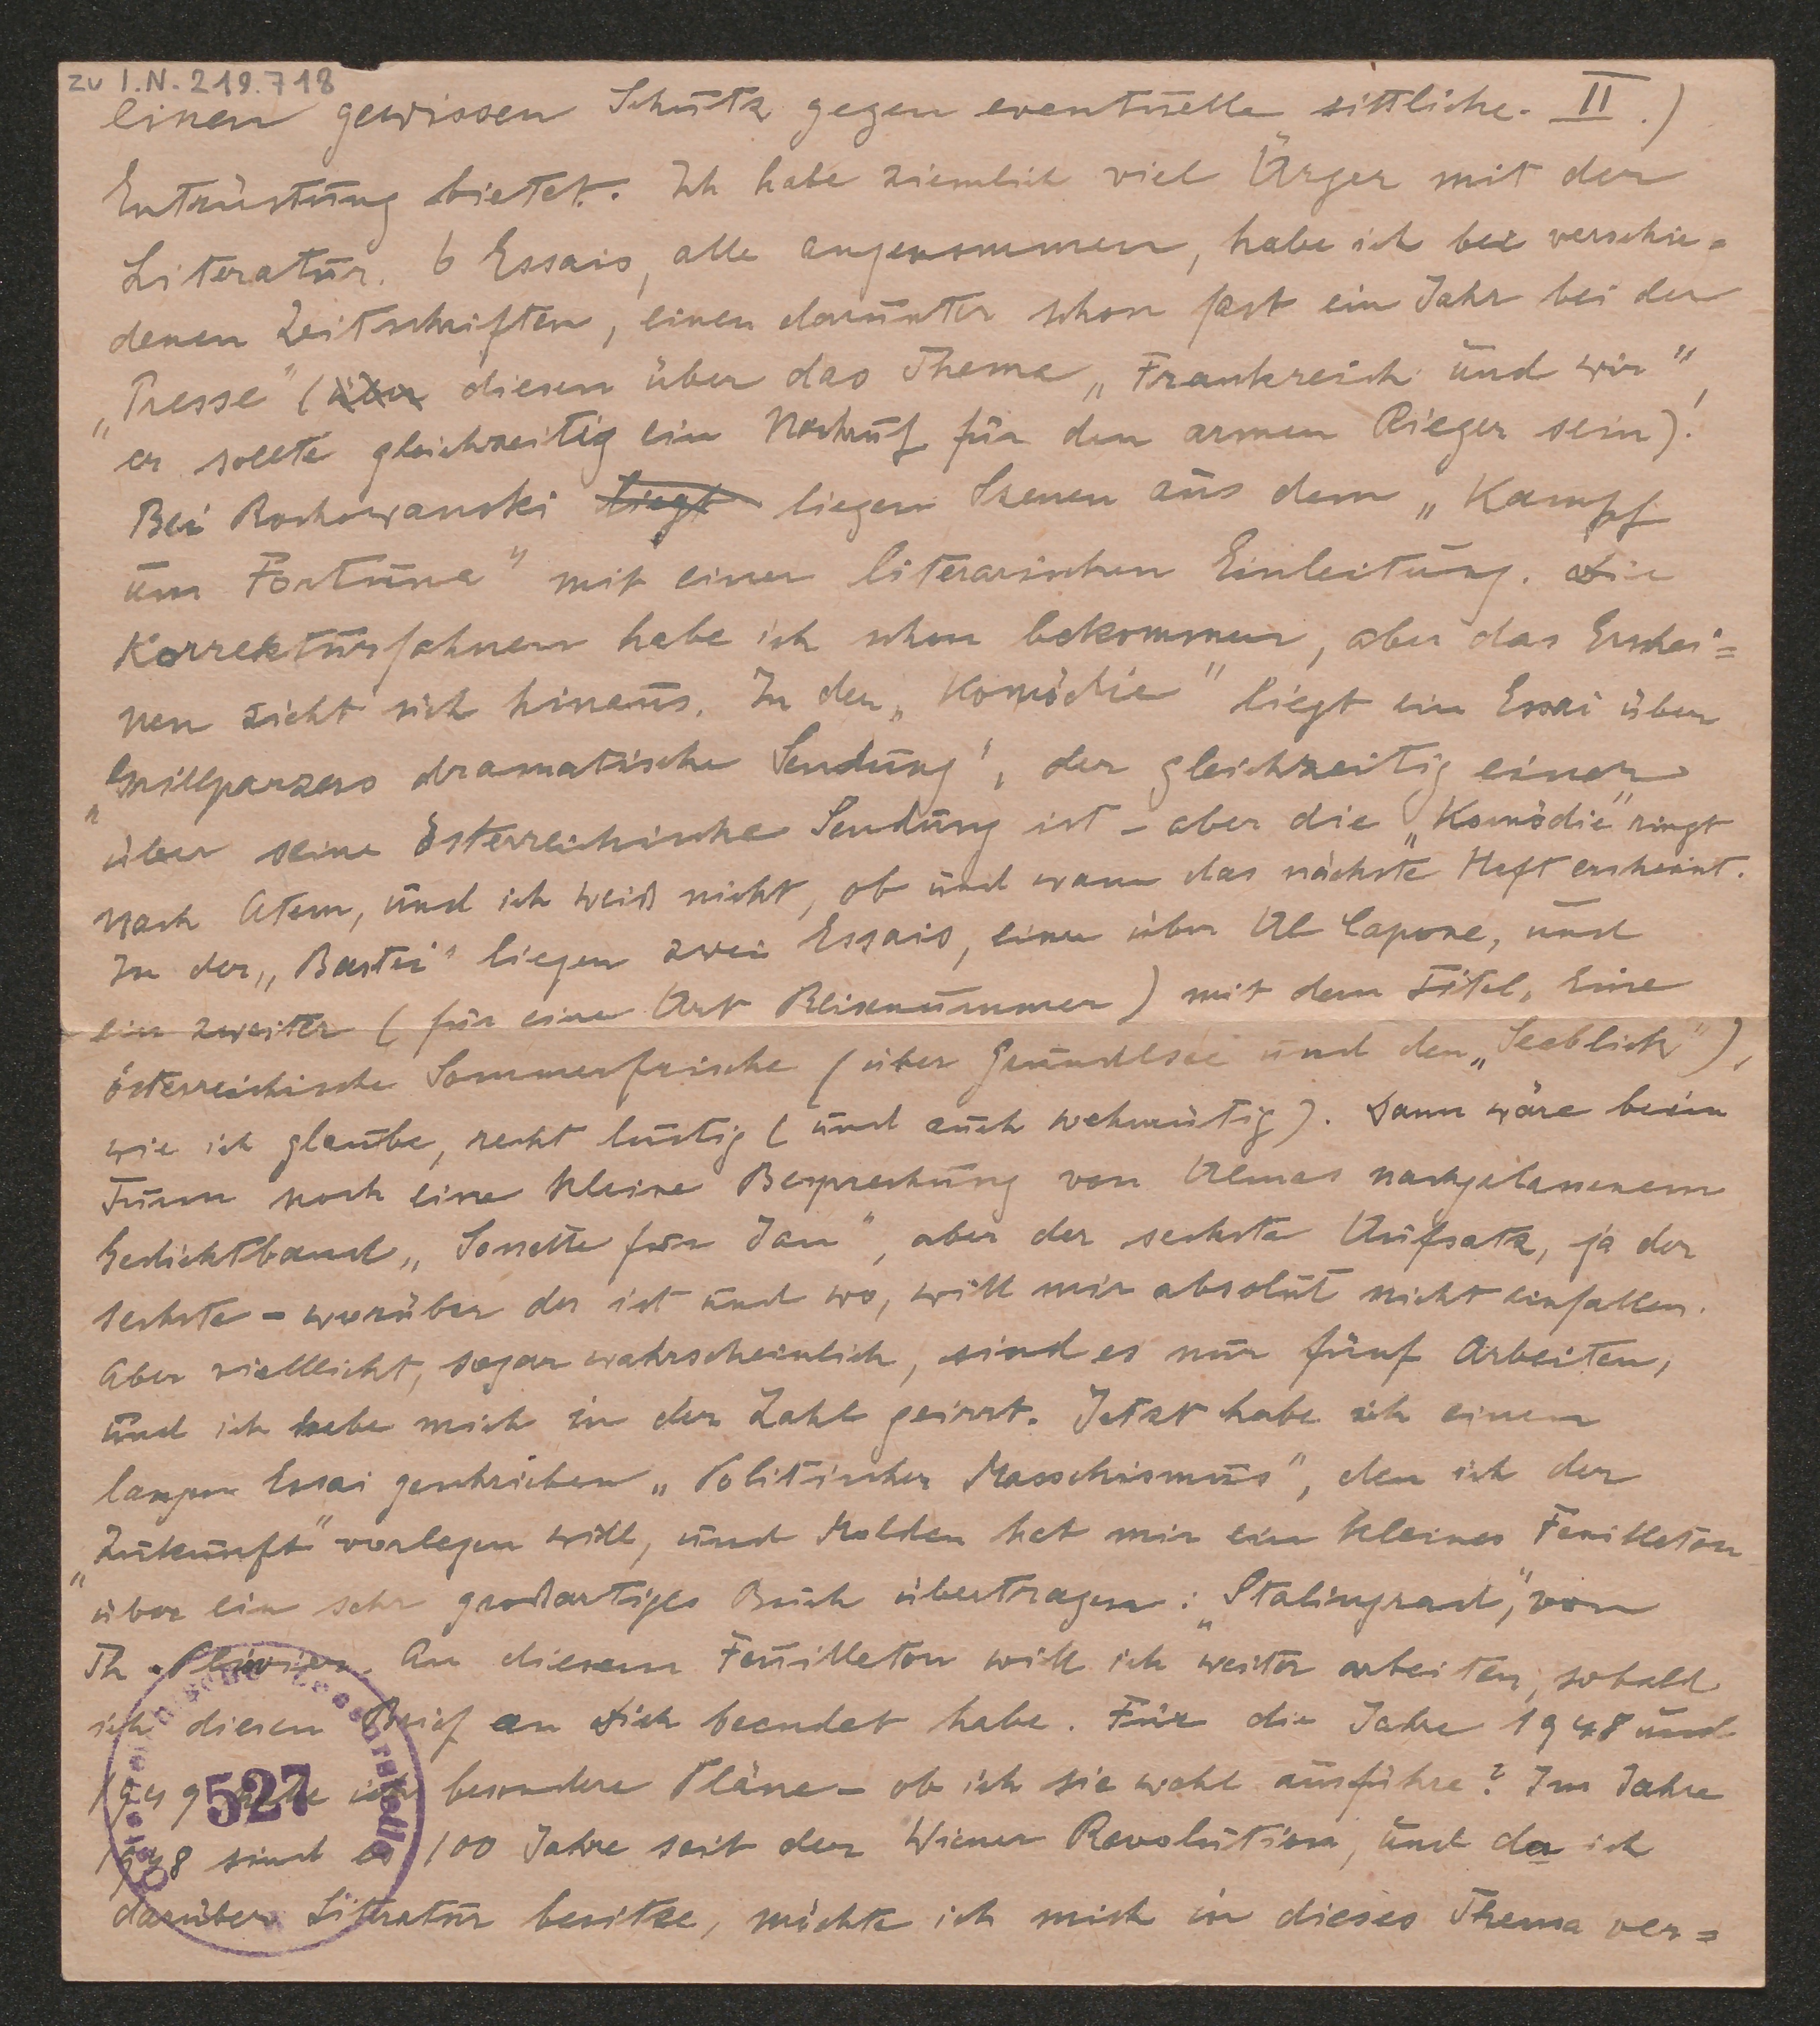 zu I.N. 219.718
einen gewissen Schutz gegen eventuelle sittliche. II.)
Entrüstung bietet. Ich habe ziemlich viel Ärger mit der
Literatur. 6 Essais, alle angenommen, habe ich bei verschie=
denen Zeitschriften, einen darunter schon fast ein Jahr bei der
„Presse" (über diesen über das Thema „Frankreich und wir",
er sollte gleichzeitig ein Nachruf für den armen Rieger sein)!
Bei Rochowanski liegt liegen Szenen aus dem „Kampf
um Fortuna" mit einer literarischen Einleitung. Die
Korrekturfahnen habe ich schon bekommen, aber das Erschei=
nen zieht sich hinaus. In der „Komödie" liegt ein Essai über
„Grillparzers dramatische Sendung", der gleichzeitig einer
über seine österreichische Sendung ist – aber die „Komödie" ringt
nach Atem, und ich weiß nicht, ob und wann das nächste Heft erscheint.
In der „Bastei" liegen zwei Essais, einer über Al Capone, und
ein zweiter (für eine Art Reisenummer) mit dem Titel „Eine
österreichische Sommerfrische (über Grundlsee und den „Seeblick"),
wie ich glaube, recht lustig (und auch wehmütig). Dann wäre beim
Turm noch eine kleine Besprechung von Almas nachgelassenem
Gedichtband „Sonette für Jan", aber der sechste Aufsatz, ja der
sechste – worüber der ist und wo, will mir absolut nicht einfallen.
Aber vielleicht, sogar wahrscheinlich, sind es nur fünf Arbeiten,
und ich habe mich in der Zahl geirrt. Jetzt habe ich einen
langen Essai geschrieben „Politischer Masochismus", den ich der
„Zukunft" vorlegen will, und Molden hat mir ein kleines Feuilleton
über ein sehr großartiges Buch übertragen: „Stalingrad", von
Th. Plivier. An diesem Feuilleton will ich weiter arbeiten, sobald
ich diesen Brief an Dich beendet habe. Für die Jahre 1948 und
1949 habe ich besondere Pläne – ob ich sie wohl ausführe? Im Jahre
1948 sind es 100 Jahre seit der Wiener Revolution, und da ich
darüber Literatur besitze, möchte ich mich in dieses Thema ver=
Österreichische Zensurstelle
527